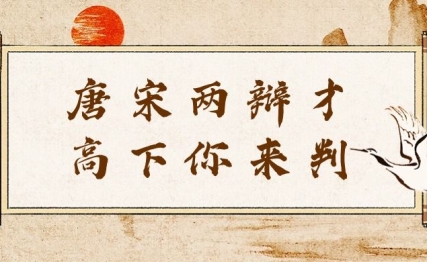 唐宋两辩才
高下你来判